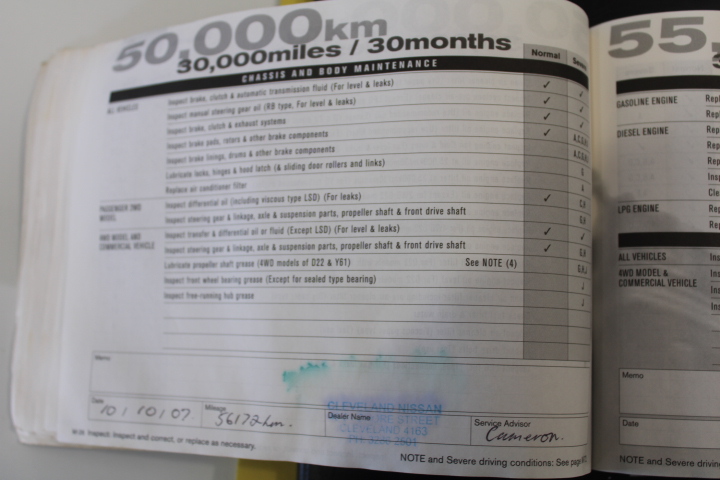 50,000km
30,000miles / 30months
CHASSIS AND BODY MAINTENANCE
Normal
ALL VEHICLES
Inspect brake, clutch & automatic transmission fluid (For level & leaks) ✓ ✓
Inspect manual steering gear oil (RB type, For level & leaks) ✓ ✓
Inspect brake, clutch & exhaust systems ✓ ✓
Inspect brake pads, rotors & other brake components ✓
Inspect brake linings, drums & other brake components
Lubricate locks, hinges & hood latch (& sliding door rollers and links)
Replace air conditioner filter
PASSENGER 2WD MODEL
Inspect differential oil (including viscous type LSD) (For leaks) ✓
Inspect steering gear & linkage, axle & suspension parts, propeller shaft & front drive shaft
4WD MODEL AND COMMERCIAL VEHICLE
Inspect transfer & differential oil or fluid (Except LSD) (For level & leaks) ✓ ✓
Inspect steering gear & linkage, axle & suspension parts, propeller shaft & front drive shaft ✓
Lubricate propeller shaft grease (4WD models of D22 & Y61) See NOTE (4)
Inspect front wheel bearing grease (Except for sealed type bearing) J
Inspect free-running hub grease J
Memo
Date 10/10/07. Mileage 56172km.
CLEVELAND NISSAN
Dealer Name STREET
CLEVELAND 4163
Service Advisor
Cameron.
Inspect: Inspect and correct, or replace as necessary.
NOTE and Severe driving conditions: See page
55,
GASOLINE ENGINE
DIESEL ENGINE
LPG ENGINE
ALL VEHICLES
4WD MODEL &
COMMERCIAL VEHICLE
Memo
Date
NOTE and Severe